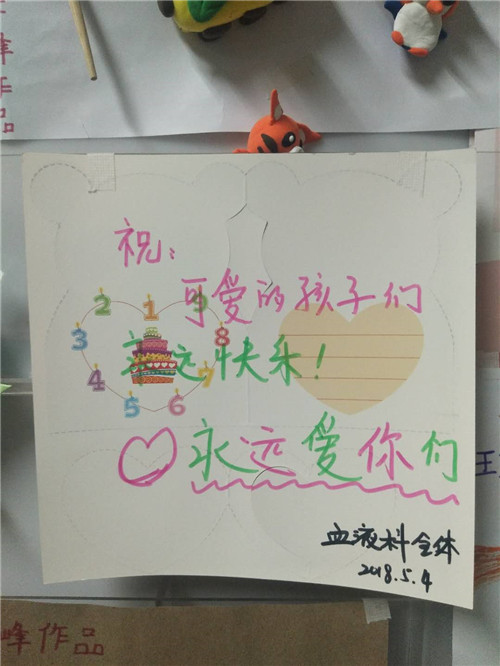 峰作品
祝:
可爱的孩子们
永远快乐!
永远爱你们
血液科全体
2018.5.4
王
峰作品
1
2
3
4
5
6
7
8
9